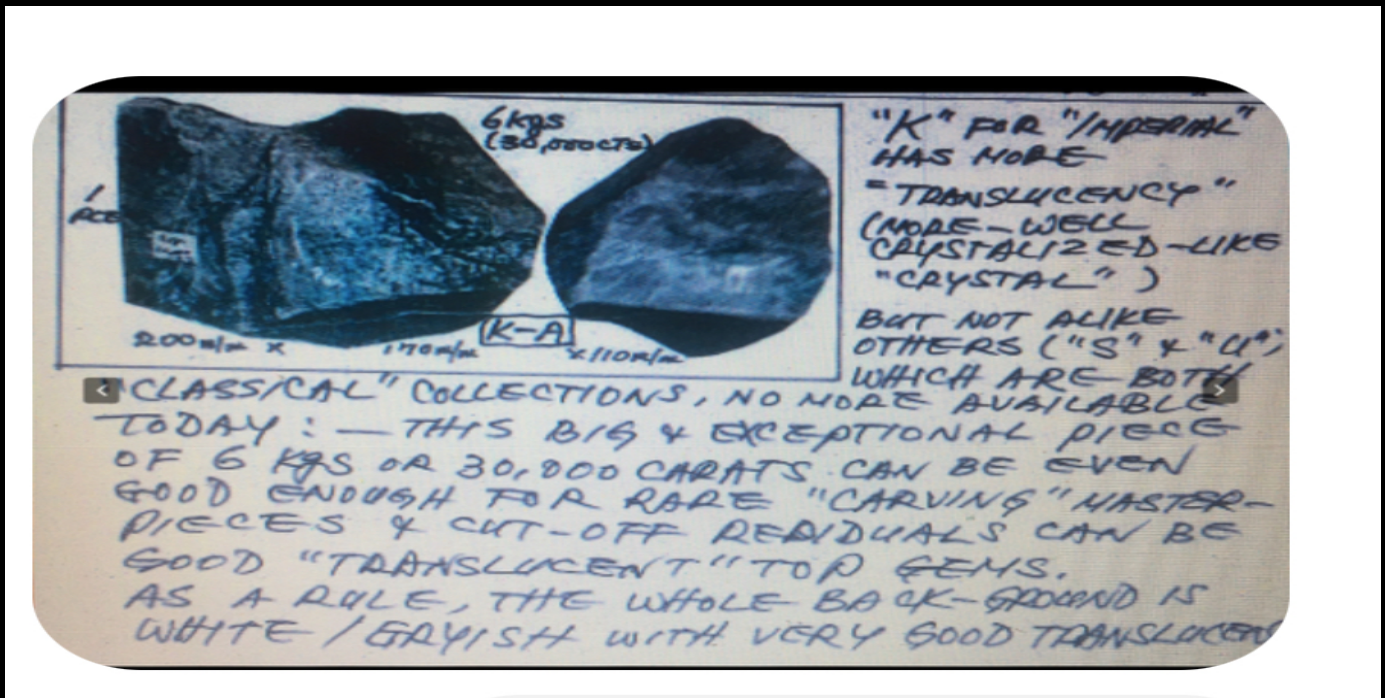 6 kgs
(30,000 CTS)
1
PCE
K-A
200 m/m x 170 m/m x 110 m/m
"K" FOR "IMPERIAL"
HAS MORE
"TRANSLUCENCY"
(MORE-WELL
CRYSTALIZED-LIKE
"CRYSTAL")
BUT NOT ALIKE
OTHERS ("S" & "U",
WHICH ARE BOTH
"CLASSICAL" COLLECTIONS, NO MORE AVAILABLE
TODAY : — THIS BIG & EXCEPTIONAL PIECE
OF 6 KgS OR 30,000 CARATS CAN BE EVEN
GOOD ENOUGH FOR RARE "CARVING" MASTER-
PIECES & CUT-OFF REDIDUALS CAN BE
GOOD "TRANSLUCENT" TOP GEMS.
AS A RULE, THE WHOLE BACK-GROUND IS
WHITE / GRYISH WITH VERY GOOD